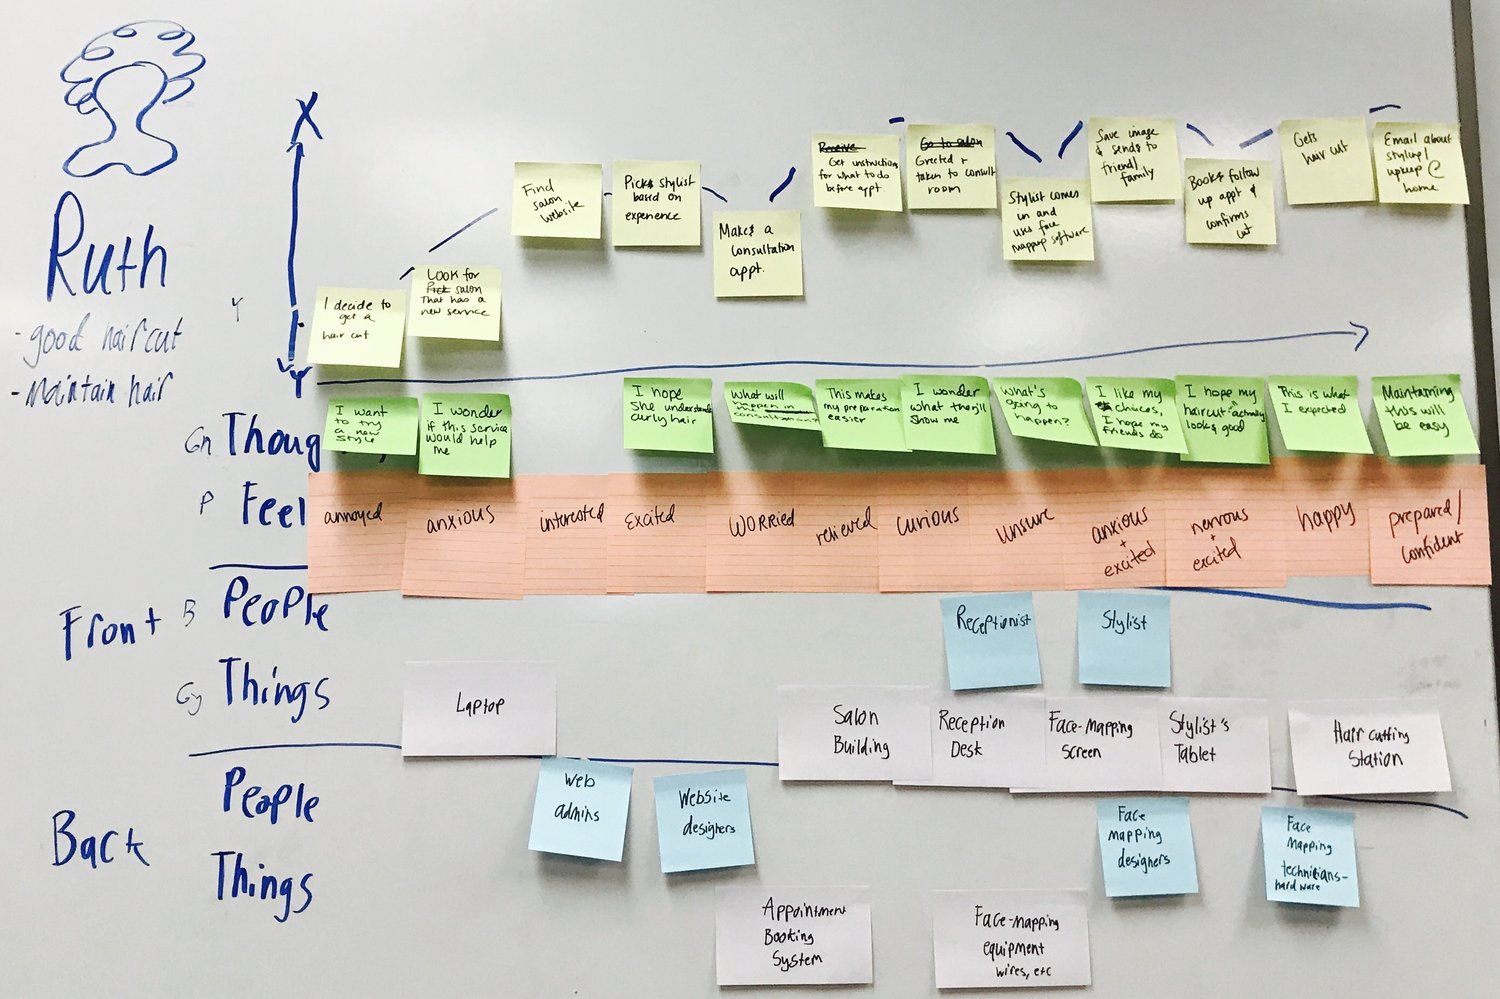 X
Ruth
- good haircut
- Maintain hair
Y
Y
I decide to
get a
hair cut
Look for
Pick salon
That has a
new service
Find
salon
website
Picks stylist
based on
experience
Makes a
consultation
appt.
Receive
Get instructions
for what to do
before appt
Go to salon
Greeted +
taken to consult
room
Stylist comes
in and
uses face
mapping software
Save image
& sends to
friend/
family
Books follow
up appt &
confirms
cut
Gets
hair cut
Email about
styling/
upkeep @
home
Gn Thoug
I want
to try
a new
style
I wonder
if this service
would help
me
I hope
she understands
curly hair
What will
happen in
consultation?
This makes
my preparation
easier
I wonder
what they'll
show me
What's
going to
happen?
I like my
choices,
I hope my
friends do
I hope my
haircut actually
looks good
This is what
I expected
Maintaining
this will
be easy
P Feel
annoyed
anxious
interested
Excited
WORRIED
relieved
curious
unsure
anxious
+
excited
nervous
+
excited
happy
prepared/
confident
Front
B People
Receptionist
Stylist
Gy Things
Laptop
Salon
Building
Reception
Desk
Face-Mapping
Screen
Stylist's
Tablet
Hair cutting
Station
Back
People
Web
admins
Website
designers
Face
mapping
designers
Face
Mapping
technicians-
hardware
Things
Appointment
Booking
System
Face-mapping
equipment
wires, etc